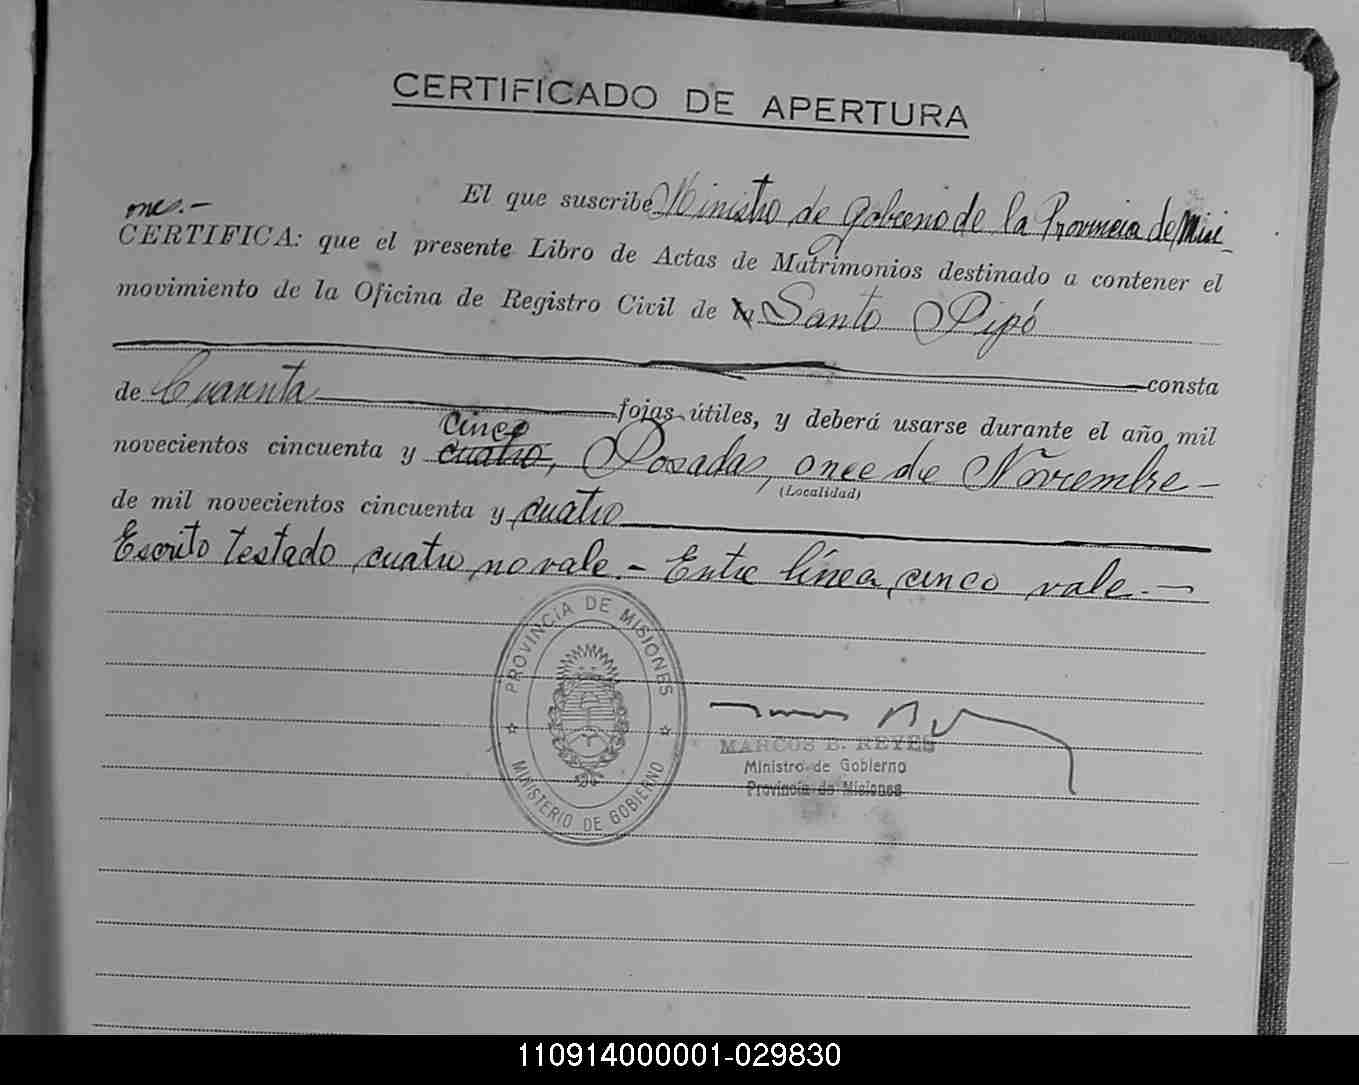 CERTIFICADO DE APERTURA
El que suscribe Ministro de Gobierno de la Provincia de Misi
ones.-
CERTIFICA: que el presente Libro de Actas de Matrimonios destinado a contener el
movimiento de la Oficina de Registro Civil de Santo Pipó
consta
de Cuarenta fojas útiles, y deberá usarse durante el año mil
cinco
novecientos cincuenta y cuatro, Posadas, once de Noviembre -
(Localidad)
de mil novecientos cincuenta y cuatro
Escrito testado cuatro, no vale. - Entre línea, cinco vale. -
PROVINCIA DE MISIONES
MINISTERIO DE GOBIERNO
MARCOS B. REYES
Ministro de Gobierno
Provincia de Misiones
110914000001-029830